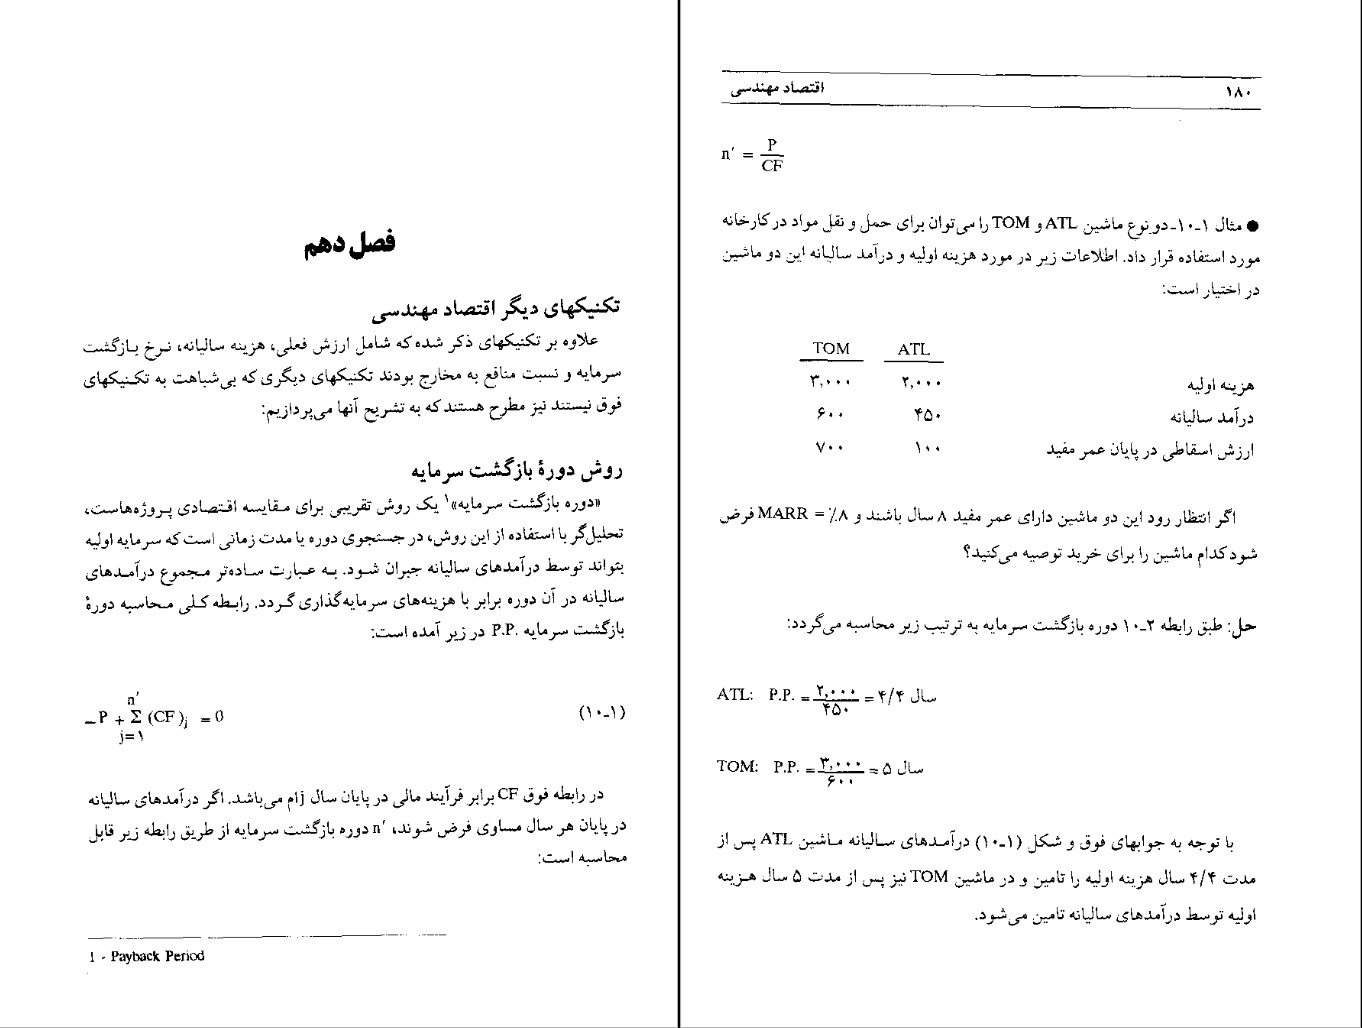 فصل دهم
تکنیکهای دیگر اقتصاد مهندسی
علاوه بر تکنیکهای ذکر شده که شامل ارزش فعلی، هزینه سالیانه، نرخ بازگشت
سرمایه و نسبت منافع به مخارج بودند تکنیکهای دیگری که بی‌شباهت به تکنیکهای
فوق نیستند نیز مطرح هستند که به تشریح آنها می‌پردازیم:
روش دورهٔ بازگشت سرمایه
«دوره بازگشت سرمایه»۱ یک روش تقریبی برای مقایسه اقتصادی پروژه‌هاست،
تحلیل‌گر با استفاده از این روش، در جستجوی دوره یا مدت زمانی است که سرمایه اولیه
بتواند توسط درآمدهای سالیانه جبران شود. به عبارت ساده‌تر مجموع درآمدهای
سالیانه در آن دوره برابر با هزینه‌های سرمایه‌گذاری گردد. رابطه کلی محاسبه دورهٔ
بازگشت سرمایه .P.P در زیر آمده است:
−P + Σ (CF)j = 0 (۱۰-۱)
n′
j=۱
در رابطه فوق CF برابر فرآیند مالی در پایان سال jام می‌باشد. اگر درآمدهای سالیانه
در پایان هر سال مساوی فرض شوند، n′ دوره بازگشت سرمایه از طریق رابطه زیر قابل
محاسبه است:
1 - Payback Period
۱۸۰ اقتصاد مهندسی
n′ = P/CF
● مثال ۱-۱۰-دو نوع ماشین ATL و TOM را می‌توان برای حمل و نقل مواد در کارخانه
مورد استفاده قرار داد. اطلاعات زیر در مورد هزینه اولیه و درآمد سالیانه این دو ماشین
در اختیار است:
TOM ATL
هزینه اولیه ۲,۰۰۰ ۳,۰۰۰
درآمد سالیانه ۴۵۰ ۶۰۰
ارزش اسقاطی در پایان عمر مفید ۱۰۰ ۷۰۰
اگر انتظار رود این دو ماشین دارای عمر مفید ۸ سال باشند و MARR = ٪۸ فرض
شود کدام ماشین را برای خرید توصیه می‌کنید؟
حل: طبق رابطه ۲-۱۰ دوره بازگشت سرمایه به ترتیب زیر محاسبه می‌گردد:
ATL: P.P. = ۲,۰۰۰/۴۵۰ = ۴/۴ سال
TOM: P.P. = ۳,۰۰۰/۶۰۰ = ۵ سال
با توجه به جوابهای فوق و شکل (۱-۱۰) درآمدهای سالیانه ماشین ATL پس از
مدت ۴/۴ سال هزینه اولیه را تامین و در ماشین TOM نیز پس از مدت ۵ سال هزینه
اولیه توسط درآمدهای سالیانه تامین می‌شود.